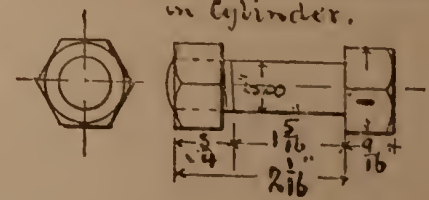 in Cylinder.
3/4 1 5/16 9/16
2 1/16"